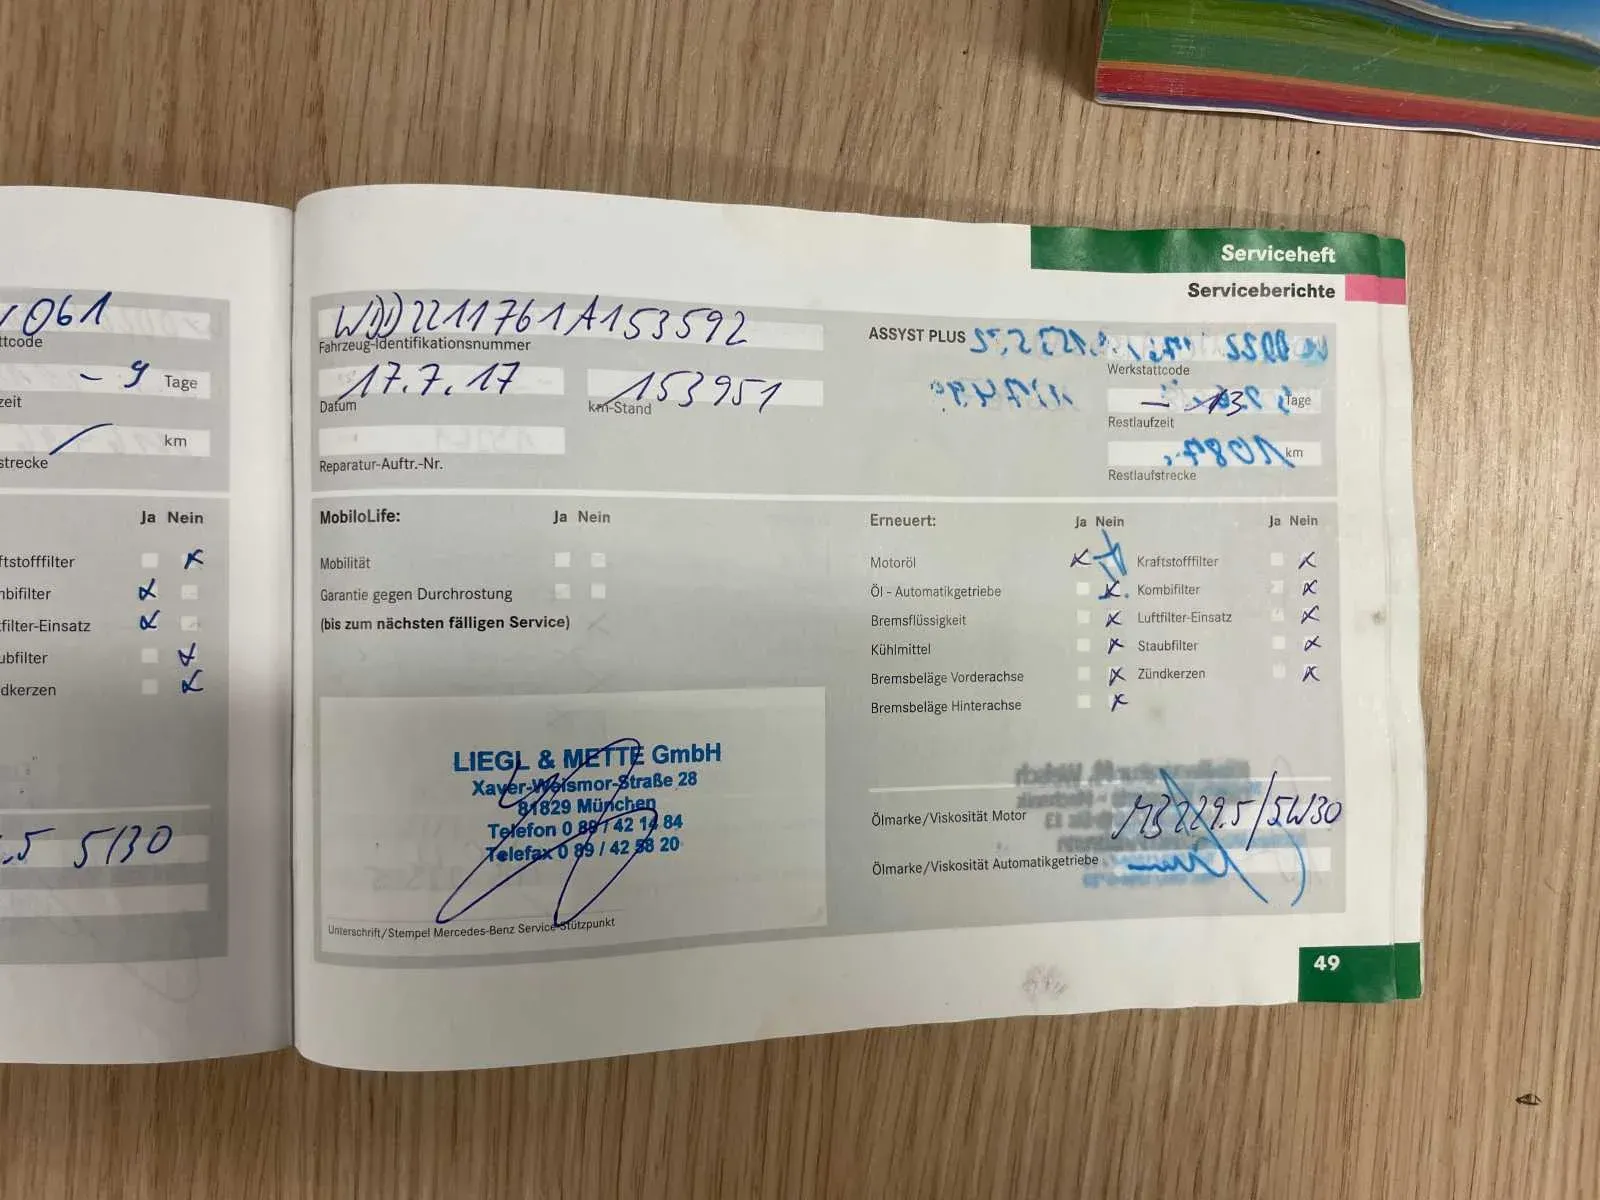 061
ttcode
- 9 Tage
zeit
km
strecke
Ja Nein
ftstofffilter
nbifilter
tfilter-Einsatz
ubfilter
dkerzen
.5 5/30
Serviceheft
Serviceberichte
WDD2211761A153592
Fahrzeug-Identifikationsnummer
17.7.17
Datum
153951
km-Stand
Reparatur-Auftr.-Nr.
ASSYST PLUS
Werkstattcode
- 13 Tage
Restlaufzeit
km
Restlaufstrecke
MobiloLife: Ja Nein
Mobilität
Garantie gegen Durchrostung
(bis zum nächsten fälligen Service)
LIEGL & METTE GmbH
Xaver-Weismor-Straße 28
81829 München
Telefon 0 89 / 42 14 84
Telefax 0 89 / 42 58 20
Unterschrift/Stempel Mercedes-Benz Service-Stützpunkt
Erneuert: Ja Nein Ja Nein
Motoröl x Kraftstofffilter x
Öl - Automatikgetriebe x Kombifilter x
Bremsflüssigkeit x Luftfilter-Einsatz x
Kühlmittel x Staubfilter x
Bremsbeläge Vorderachse x Zündkerzen x
Bremsbeläge Hinterachse x
Ölmarke/Viskosität Motor MB229.5/5W30
Ölmarke/Viskosität Automatikgetriebe
49